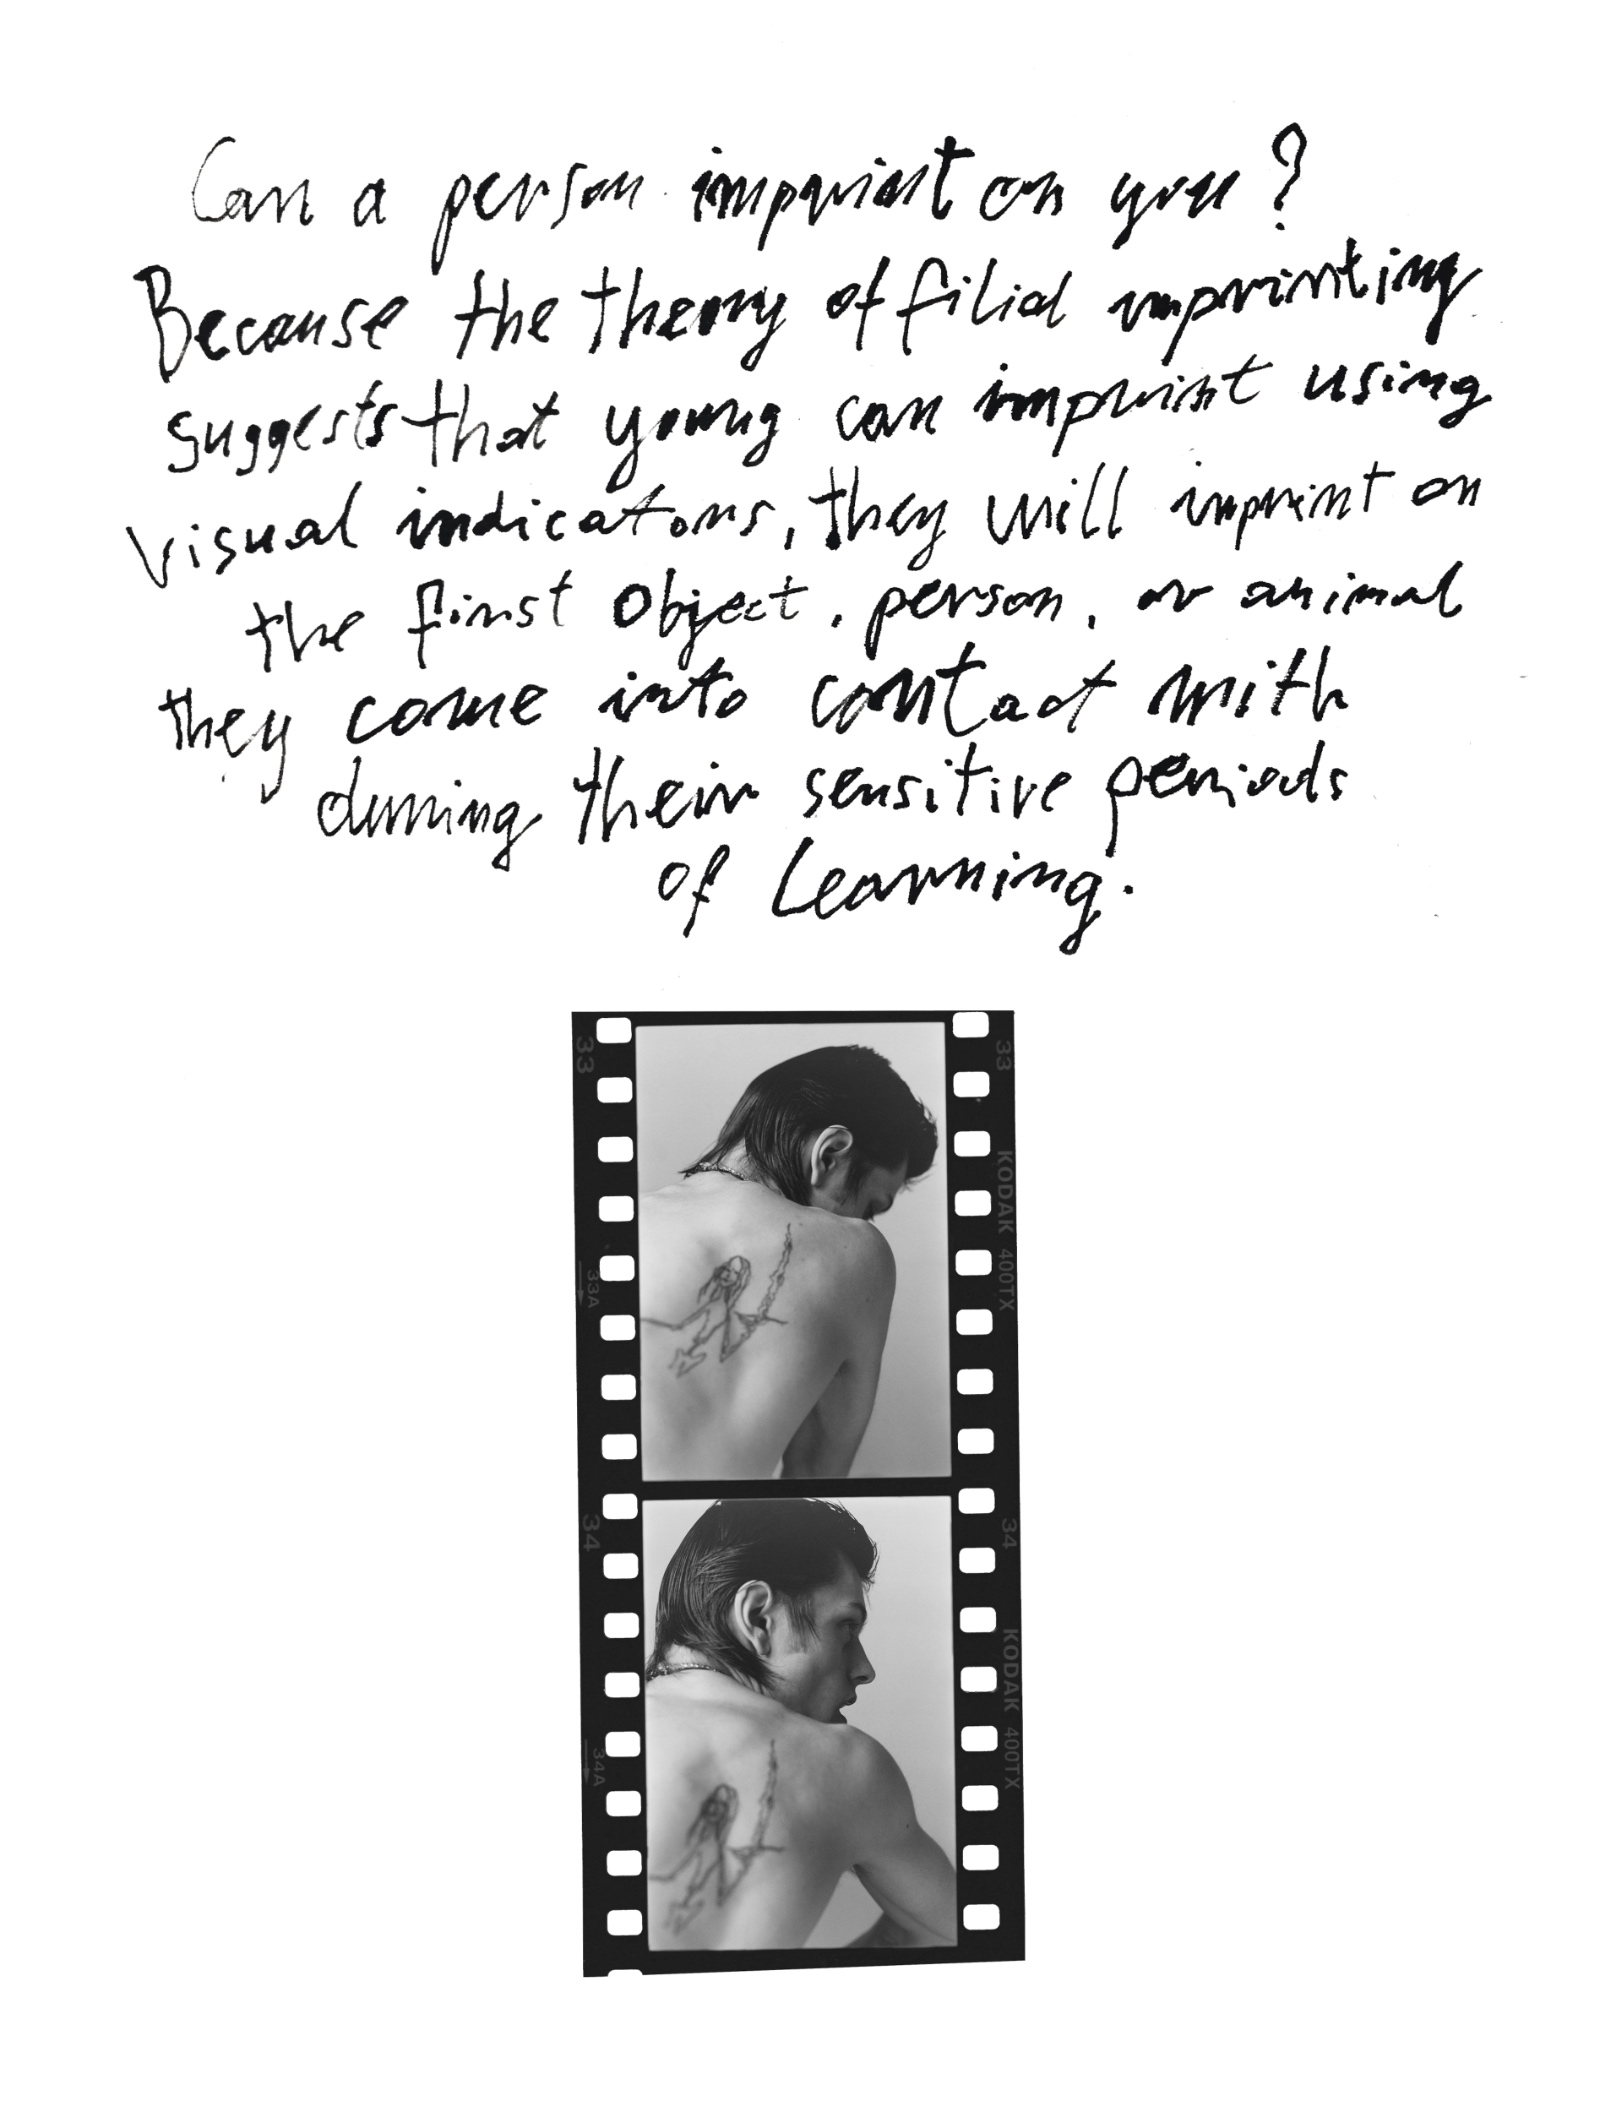 Can a person imprint on you?
Because the theory of filial imprinting
suggests that young can imprint using
visual indicators, they will imprint on
the first object, person, or animal
they come into contact with
during their sensitive periods
of Learning.
33
33
KODAK 400TX
33A
34
34
KODAK 400TX
34A